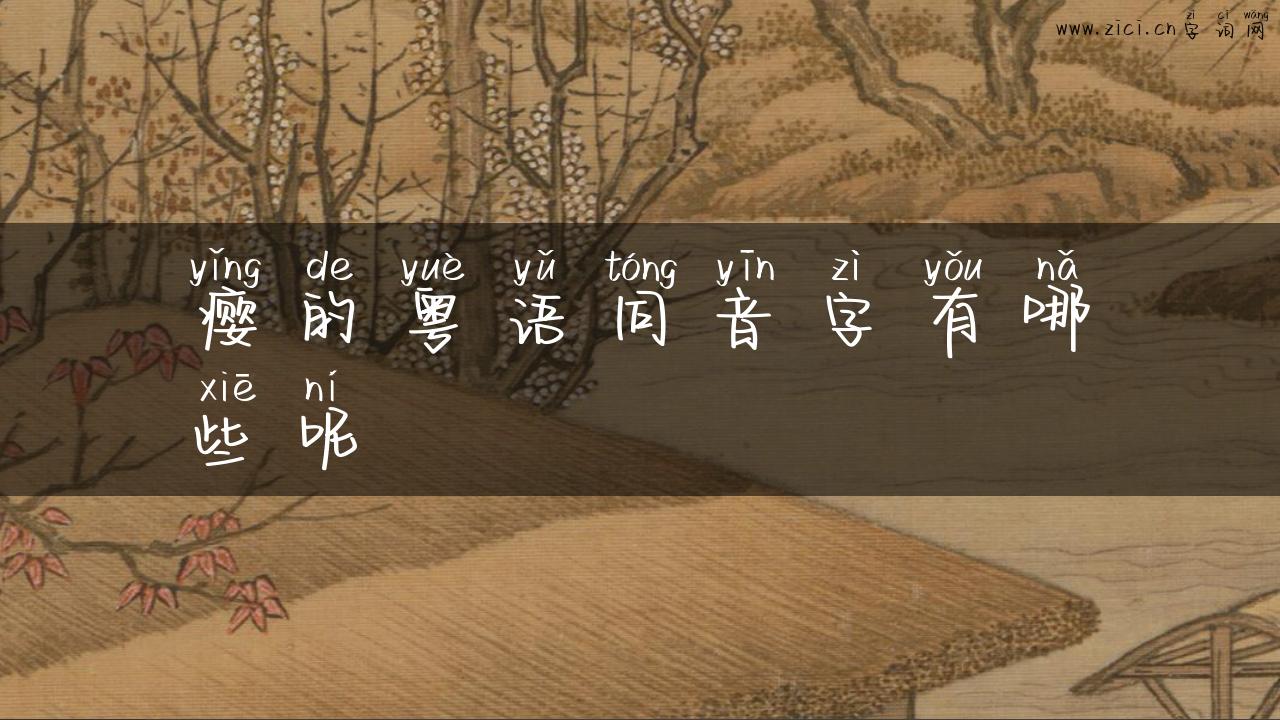 zì cí wǎng
www.zici.cn 字词网
yǐng de yuè yǔ tóng yīn zì yǒu nǎ
瘿的粤语同音字有哪
xiē ní
些呢